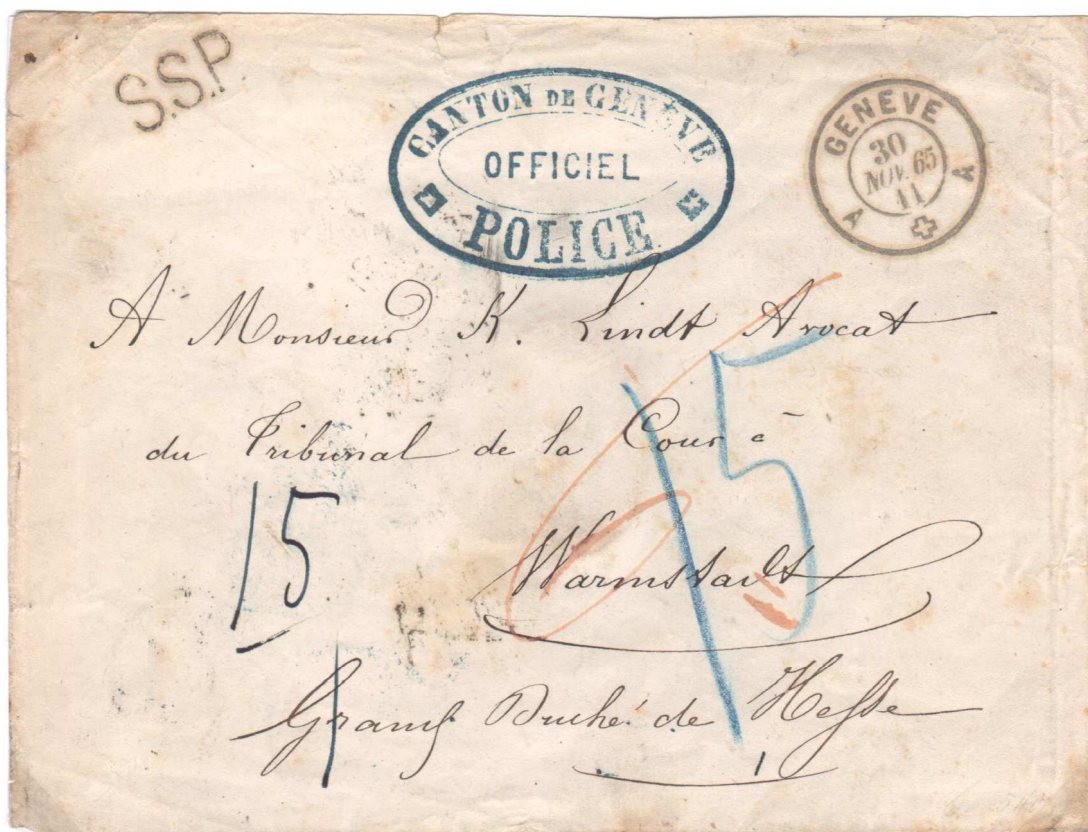 S.S.P
CANTON DE GENÈVE
OFFICIEL
POLICE
GENEVE
30
NOV. 65
11
A A
A Monsieur K. Lindt Avocat
du Tribunal de la Cour à
15
15
Warmstadt
Grand Duché de Hesse